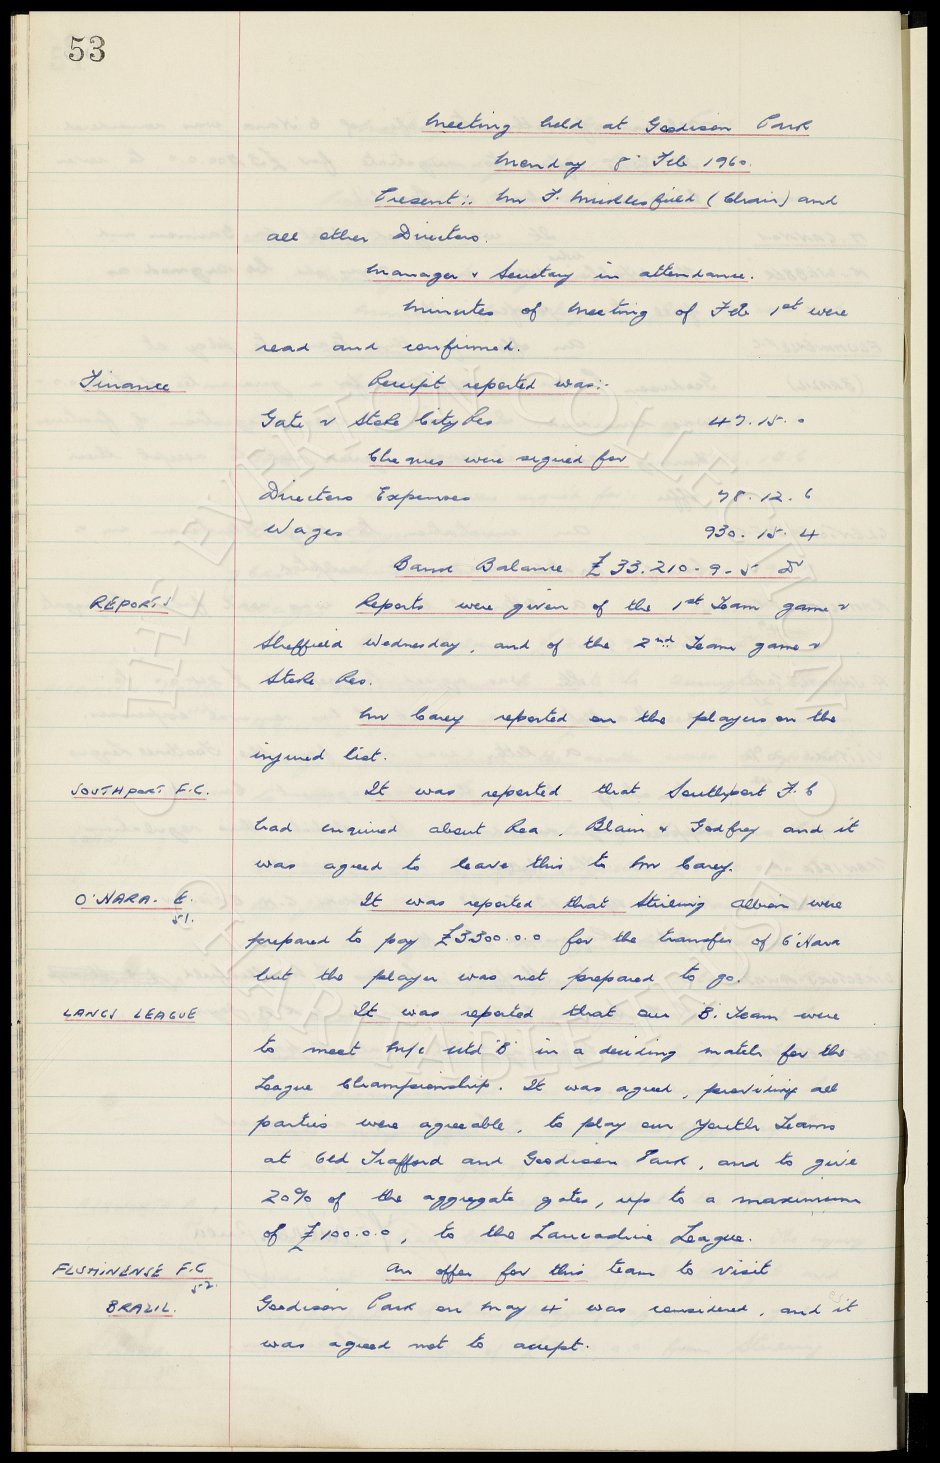 53
Meeting held at Goodison Park
Monday 8 Feb 1960.
Present:- Mr F. Micklesfield (Chair) and
all other Directors.
Manager & Secretary in attendance.
Minutes of Meeting of Feb 1st were
read and confirmed.
Finance Receipt reported was:-
Gate v Stoke City Res 47.15.0
Cheques were signed for
Directors Expenses 78.12.6
Wages 930.15.4
Bank Balance £33.210-9-5 Dr
REPORTS Reports were given of the 1st Team game v
Sheffield Wednesday, and of the 2nd Team game v
Stoke Res.
Mr Carey reported on the players on the
injured list.
SOUTHPORT F.C. It was reported that Southport F.C
had enquired about Rea, Blain & Godfrey and it
was agreed to leave this to Mr Carey.
O'HARA. E. It was reported that Stirling Albion were
51.
prepared to pay £3300.0.0 for the transfer of O'Hara
but the player was not prepared to go.
LANCS LEAGUE It was reported that our 'B' Team were
to meet M/c Utd 'B' in a deciding match for the
League Championship. It was agreed, providing all
parties were agreeable, to play our Youth Teams
at Old Trafford and Goodison Park, and to give
20% of the aggregate gates, up to a maximum
of £100.0.0, to the Lancashire League.
FLUMINENSE F.C An offer for this team to visit
52.
BRAZIL. Goodison Park on May 4 was considered, and it
was agreed not to accept.
THE EVERTON COLLECTION
CHARITABLE TRUST